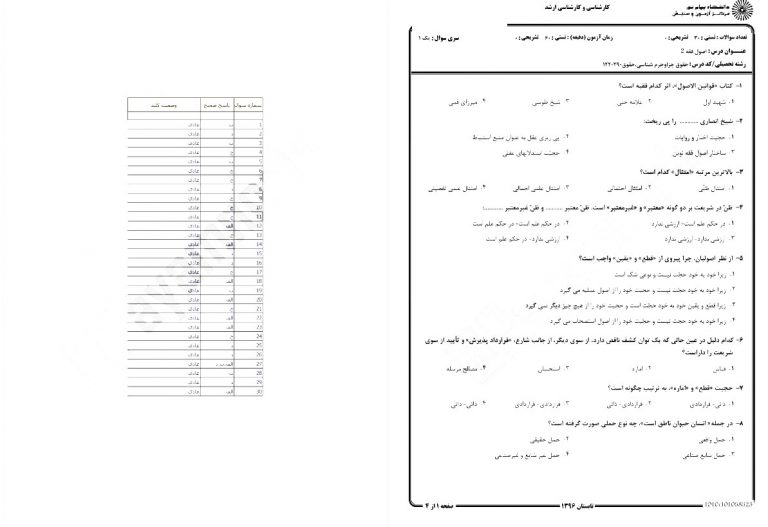 دانشگاه پیام نور
مرکز آزمون و سنجش
کارشناسی و کارشناسی ارشد
تعداد سوالات : تستی : ۳۰ تشریحی : ۰
زمان آزمون (دقیقه) : تستی : ۶۰ تشریحی : ۰
سری سوال : یک ۱
عنـــوان درس : اصول فقه 2
رشته تحصیلی/کد درس : حقوق جزاوجرم شناسی،حقوق۱۲۲۰۳۹۰
۱- کتاب «قوانین الاصول»، اثر کدام فقیه است؟
۱. شهید اول ۲. علامه حلی ۳. شیخ طوسی ۴. میرزای قمی
۲- شیخ انصاری .......... را پی ریخت:
۱. حجیت اخبار و روایات ۲. پی ریزی عقل به عنوان منبع استنباط
۳. ساختار اصول فقه نوین ۴. حجیت استدلالهای عقلی
۳- بالاترین مرتبه «امتثال» کدام است؟
۱. امتثال ظنّی ۲. امتثال احتمالی ۳. امتثال علمی اجمالی ۴. امتثال علمی تفصیلی
۴- ظنّ در شریعت بر دو گونه «معتبر» و «غیرمعتبر» است. ظنّ معتبر .......... و ظنّ غیرمعتبر ..........:
۱. در حکم علم است- ارزشی ندارد ۲. در حکم علم است- در حکم علم است
۳. ارزشی ندارد- ارزشی ندارد ۴. ارزشی ندارد- در حکم علم است
۵- از نظر اصولیان، چرا پیروی از «قطع» و «یقین» واجب است؟
۱. زیرا خود به خود حجّت نیست و نوعی شک است
۲. زیرا خود به خود حجّت نیست و حجیت خود را از اصول عملیه می گیرد
۳. زیرا قطع و یقین خود به خود حجّت است و حجیت خود را از هیچ چیز دیگر نمی گیرد
۴. زیرا خود به خود حجّت نیست و حجیت خود را از اصول استصحاب می گیرد
۶- کدام دلیل در عین حالی که یک توان کشف ناقص دارد، از سوی دیگر، از جانب شارع، «قرارداد پذیرش» و تأیید از سوی
شریعت را داراست؟
۱. قیاس ۲. اماره ۳. استحسان ۴. مصالح مرسله
۷- حجیت «قطع» و «اماره»، به ترتیب چگونه است؟
۱. ذاتی- قراردادی ۲. قراردادی- ذاتی ۳. قراردادی- قراردادی ۴. ذاتی- ذاتی
۸- در جمله« انسان حیوان ناطق است»، چه نوع حملی صورت گرفته است؟
۱. حمل واقعی ۲. حمل حقیقی
۳. حمل شایع صناعی ۴. حمل غیر شایع و غیرصناعی
صفحه ۱ از ۴
تابستان ۱۳۹۶
1010/101068323
شماره سوال پاسخ صحیح وضعیت کلید
1 ب عادی
2 د عادی
3 ب عادی
4 ج عادی
5 ب عادی
6 ج عادی
7 ج عادی
8 د عادی
9 ج عادی
10 ج عادی
11 ج عادی
12 الف عادی
13 ج عادی
14 الف عادی
15 د عادی
16 د عادی
17 ج عادی
18 الف عادی
19 ب عادی
20 الف عادی
21 ج عادی
22 الف عادی
23 الف عادی
24 ج عادی
25 د عادی
26 د عادی
27 عادی
28 ب عادی
29 د عادی
30 الف عادی